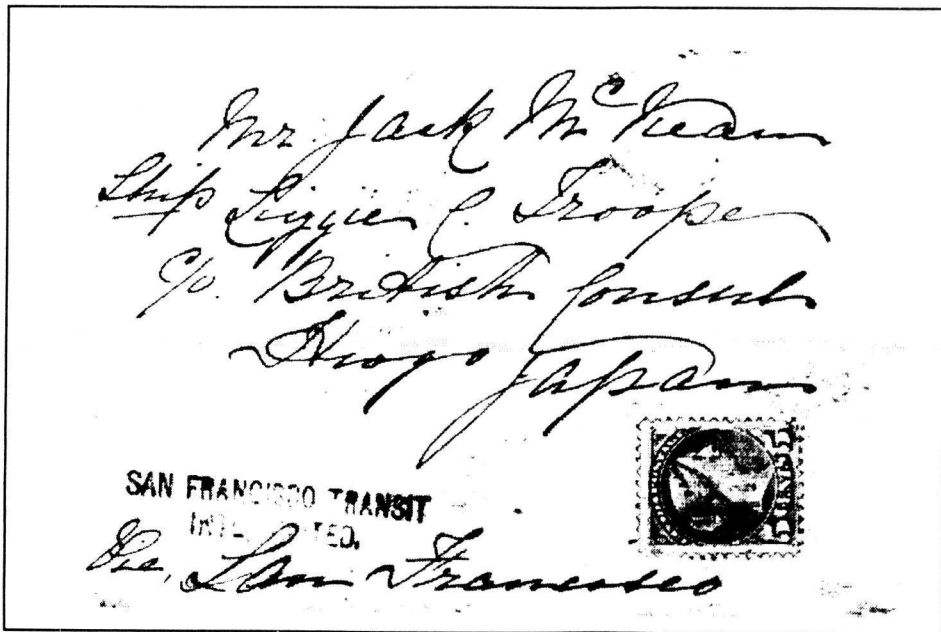 Mr Jack McKean
Ship Lizzie C. Troope
c/o. British Consul
Hiogo Japan
SAN FRANCISCO TRANSIT
Via, San Francisco